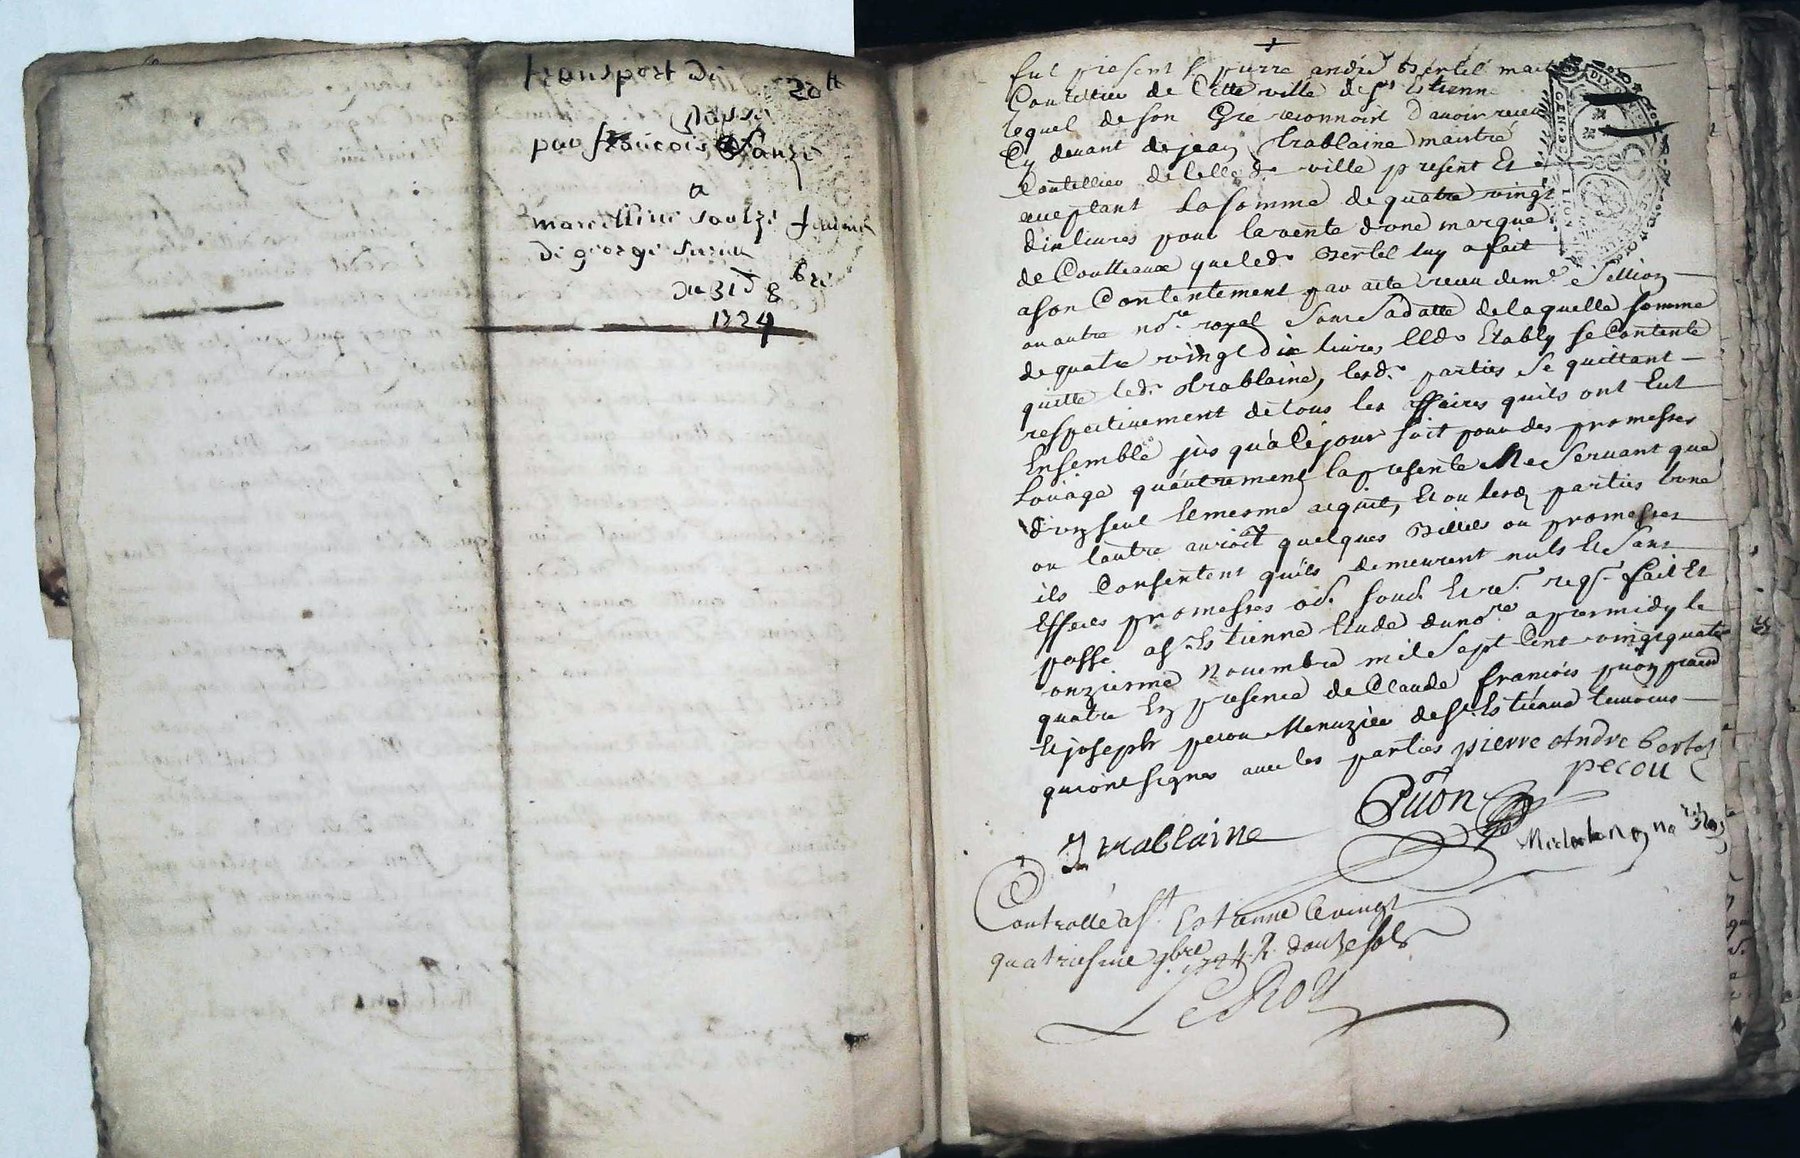 transport de
20tt
passé
par francois Sauze
a
marcelline Sauze femme
de george
du 31e 8bre
1724
fut present Sr pierre andré Bertel maitre
Coutellier de Cette ville de St Estienne
lequel de son Gré reconnoist d'avoir receu
Cy devant de jean trablaine maistre
Coutellier de lad. ville present Et
acceptant La somme de quatre vingt
dix livres pour la vente d'une marque
de Coutteaux que led. Bertel luy a fait
a son Contentement par acte receu de me.
ou autre nore. royal Sous Sa datte de laquelle somme
de quatre vingt dix livres, led. Etably se Contente
quitte led. trablaine, lesd. parties Se quittant
respectivement de tous les affaires quils ont Eut
Ensemble jusqu'a Ce jour soit pour des promesses
Louage qu'autrement la presente Ne Servant que
d'un seul Et mesme acquit, Et ou lesd. parties L'une
ou l'autre auroit quelques Billets ou promesses
ils Consentent quils demeurent nuls Et Sans
Effects promesses ob. soub. Et re. reqs. fait Et
passé a St Estienne Etude du nore. apres midy le
onzieme Novembre mil Sept Cent vingt quatre
quatre En presence de Claude francois puon
Et joseph pecou Menuzier de St. Estienne temoins
qui ont signes avec les parties pierre Andre bertel
pecou
J trablaine
Puon
Controllé a St. Estienne le vingt
quatriesme 9bre 1724 R douze sols
LeRoy